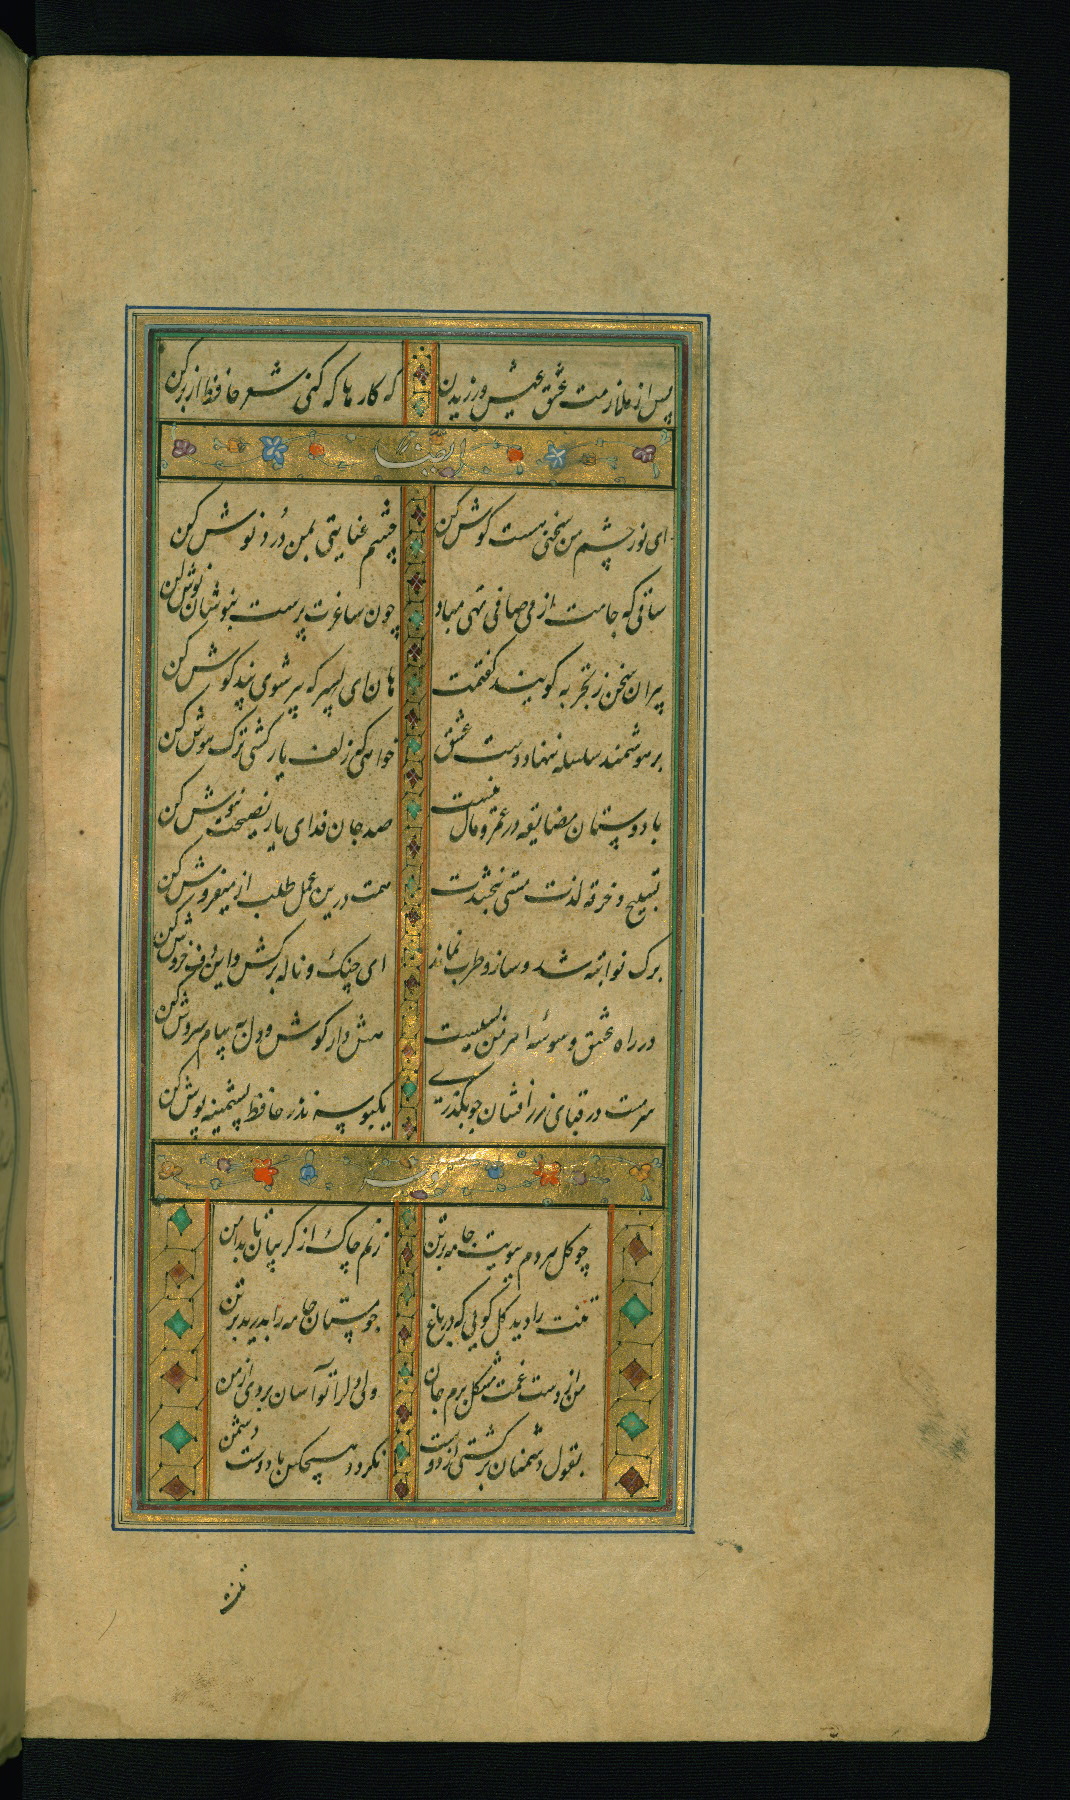 پس از ملازمت عشق عیش ورزیدن که کارها که کنی شعر حافظ از بر کن
ایضاً
ای نور چشم من سخنی هست گوش کن چشم عنایتی بمن دُرد نوش کن
ساقی که جامت از می صافی تهی مباد چون ساغرت پرست بنوشان نوش کن
پیران سخن ز تجربه گویند گفتمت هان ای پسر که پیر شوی پند گوش کن
بر هوشمند سلسله ننهاد دست عشق خواهی که زلف یار کشی ترک هوش کن
با دوستان مضایقه در عمر و مال نیست صد جان فدای یار نصیحت نیوش کن
تسبیح و خرقه لذت مستی نبخشدت همت درین عمل طلب از میفروش کن
برک نوا تبه شد و ساز و طرب نماند ای چنک و ناله برکش و ای دف خروش کن
در راه عشق وسوسهٔ اهرمن بسیست هش دار گوش و دل به پیام سروش کن
سرمست در قبای زر افشان چو بگذری یکبوسه نذر حافظ پشمینه پوش کن
چو گل هر دم بویت جامه بر تن زنم چاک از گریبان تا بدامن
تنت را دید گل گویی که در باغ چو مستان جامه را بدرید بر تن
من از دست غمت مشکل برم جان ولی دل را تو آسان بردی از من
بقول دشمنان برگشتی از دوست نگردد هیچکس با دوست دشمن